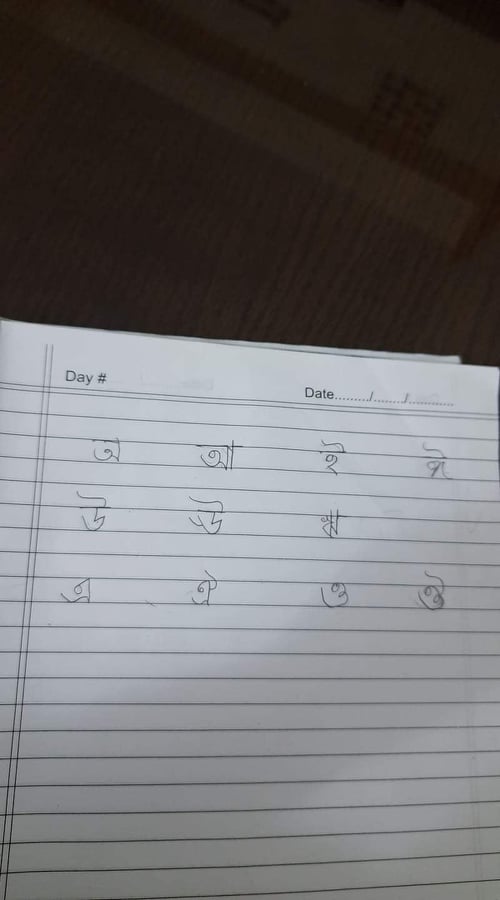 Day #
Date........./......../............
অ আ ই ঈ
উ ঊ ঋ
এ ঐ ও ঔ